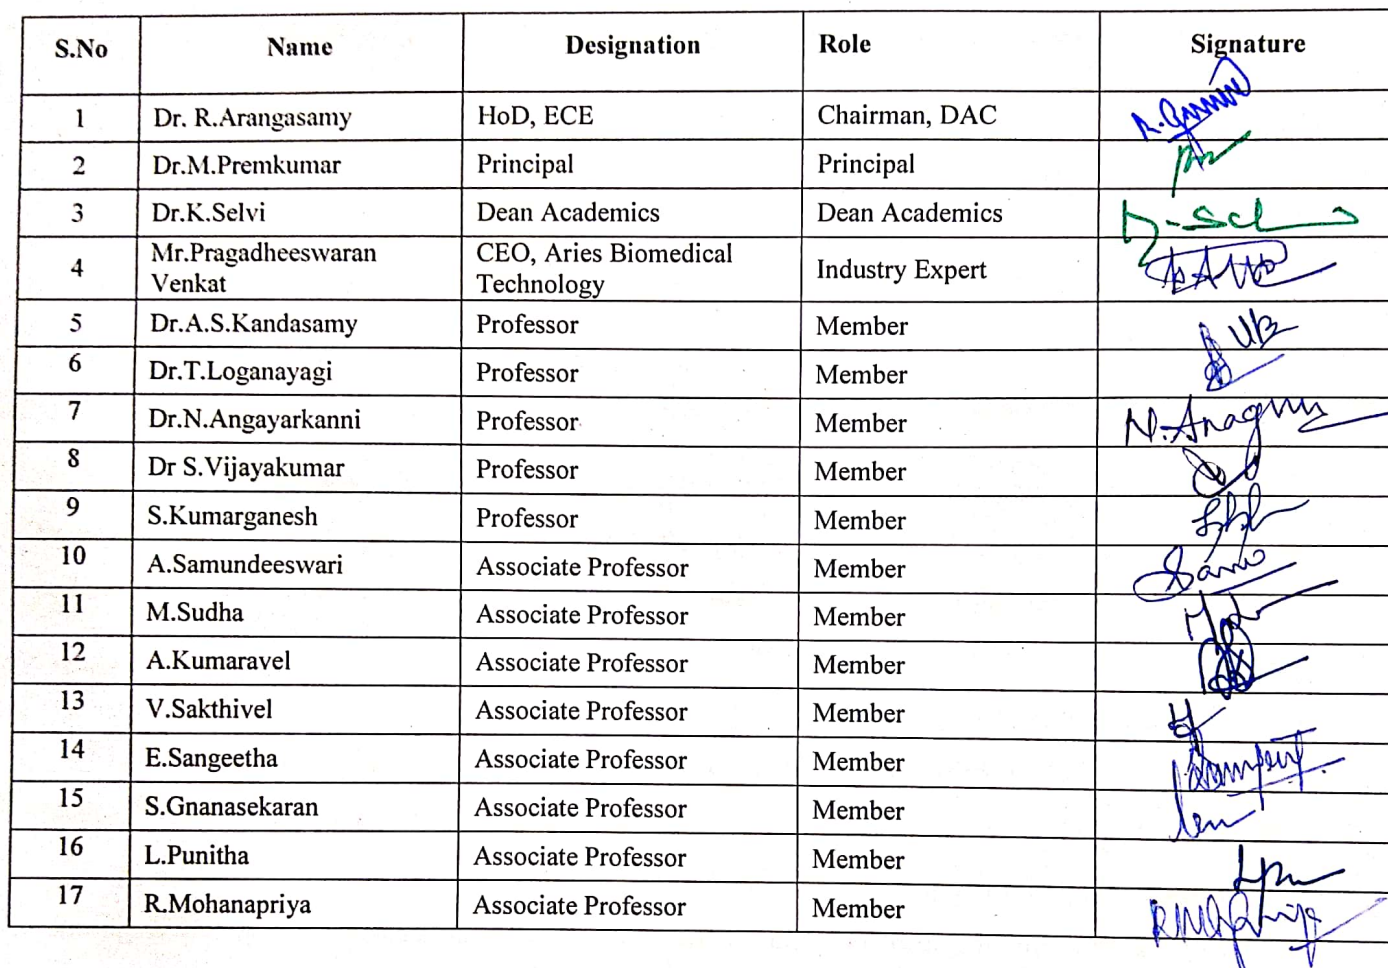 S.No Name Designation Role Signature
1 Dr. R.Arangasamy HoD, ECE Chairman, DAC
2 Dr.M.Premkumar Principal Principal
3 Dr.K.Selvi Dean Academics Dean Academics
4 Mr.Pragadheeswaran Venkat CEO, Aries Biomedical Technology Industry Expert
5 Dr.A.S.Kandasamy Professor Member
6 Dr.T.Loganayagi Professor Member
7 Dr.N.Angayarkanni Professor Member
8 Dr S.Vijayakumar Professor Member
9 S.Kumarganesh Professor Member
10 A.Samundeeswari Associate Professor Member
11 M.Sudha Associate Professor Member
12 A.Kumaravel Associate Professor Member
13 V.Sakthivel Associate Professor Member
14 E.Sangeetha Associate Professor Member
15 S.Gnanasekaran Associate Professor Member
16 L.Punitha Associate Professor Member
17 R.Mohanapriya Associate Professor Member